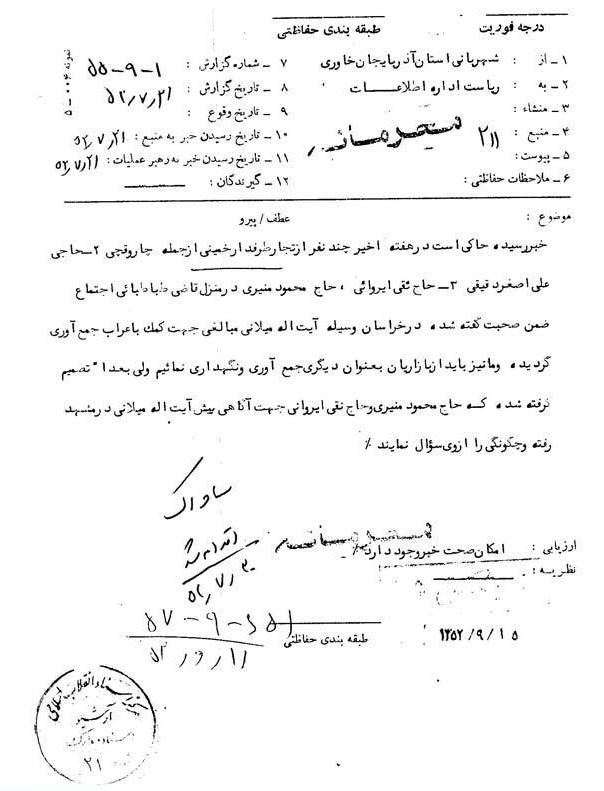 درجه فوریت
طبقه بندی حفاظتی
۱ـ از : شهربانی استان آذربایجان خاوری
۲ـ به : ریاست اداره اطلاعات
۳ـ منشاء :
۴ـ منبع : ۲۱۱
۵ـ پیوست :
۶ـ ملاحظات حفاظتی :
محرمانه
۷ـ شماره گزارش : ۱-۹-۵۵
۸ـ تاریخ گزارش : ۵۲/۷/۲۱
۹ـ تاریخ وقوع :
۱۰ـ تاریخ رسیدن خبر به منبع : ۵۲/۷/۲۱
۱۱ـ تاریخ رسیدن خبر به رهبر عملیات : ۵۲/۷/۲۱
۱۲ـ گیرندگان :
نمونه ۰۰۴ـ۵
موضوع : عطف / پیرو
خبر رسیده حاکی است در هفته اخیر چند نفر از تجار طرفدار خمینی از جمله چاروقچی ۲ـ حاجی
علی اصغر دقیقی ۳ـ حاج تقی ایروانی ، حاج محمود منیری در منزل قاضی طباطبائی اجتماع
ضمن صحبت گفته شده در خراسان وسیله آیت اله میلانی مبالغی جهت کمک باعراب جمع آوری
گردیده و مانیز باید از بازاریان بعنوان دیگری جمع آوری و نگهداری نمائیم ولی بعدا" تصمیم
گرفته شده که حاج محمود منیری و حاج نقی ایروانی جهت آگاهی پیش آیت اله میلانی در مشهد
رفته و چگونگی را از وی سؤال نمایند ٪
ساواک
اقدام شد
محرمانه
ارزیابی : امکان صحت خبر وجود دارد ٪
نظریه :
طبقه بندی حفاظتی
۱۳۵۲/۹/۱۵
مرکز اسناد انقلاب اسلامی
آرشیو
۲۱